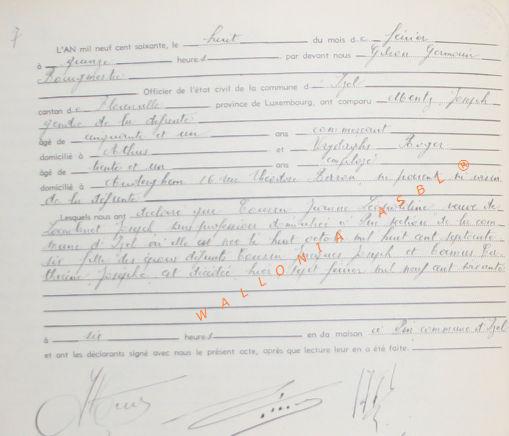 7
L'AN mil neuf cent soixante, le huit du mois de février
à quinze heures par devant nous Gilson Germain
Bourgmestre
Officier de l'état civil de la commune d' Izel
canton de Florenville province de Luxembourg, ont comparu Mentz Joseph
gendre de la défunte
âgé de cinquante et un ans commerçant
domicilié à Athus et Roger
âgé de trente et un ans employé
domicilié à Auderghem 16 rue Théodore ni parent ni voisin
de la défunte
Lesquels nous ont déclaré que Toussin Jeanne Léopoldine veuve de
Joseph, sans profession domiciliée à Pin section de la com
mune d' Izel où elle est née le huit octobre mil huit cent septante
six fille des époux défunts Toussin Jacques Joseph et Ca
therine Josèphe est décédée hier sept février mil neuf cent soixante
à six heures en sa maison à Pin commune d' Izel
et ont les déclarants signé avec nous le présent acte, après que lecture leur en a été faite.
WALLONIA ASBL®